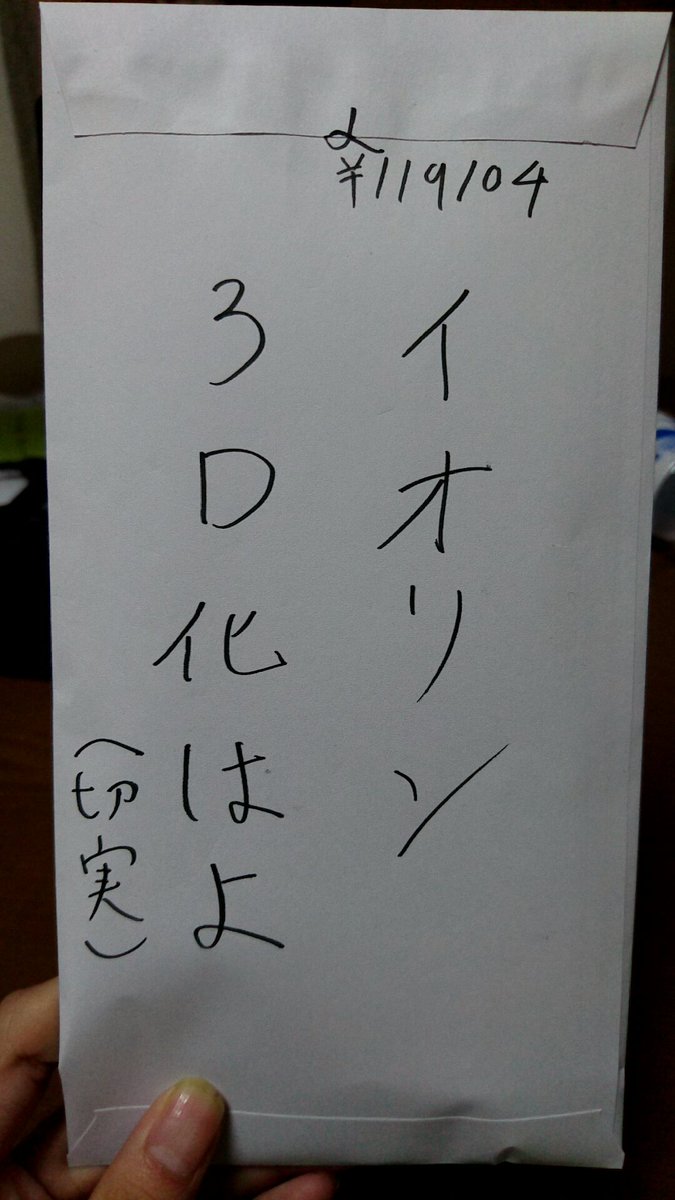 ¥119104
イオリン
3D化はよ
(切実)